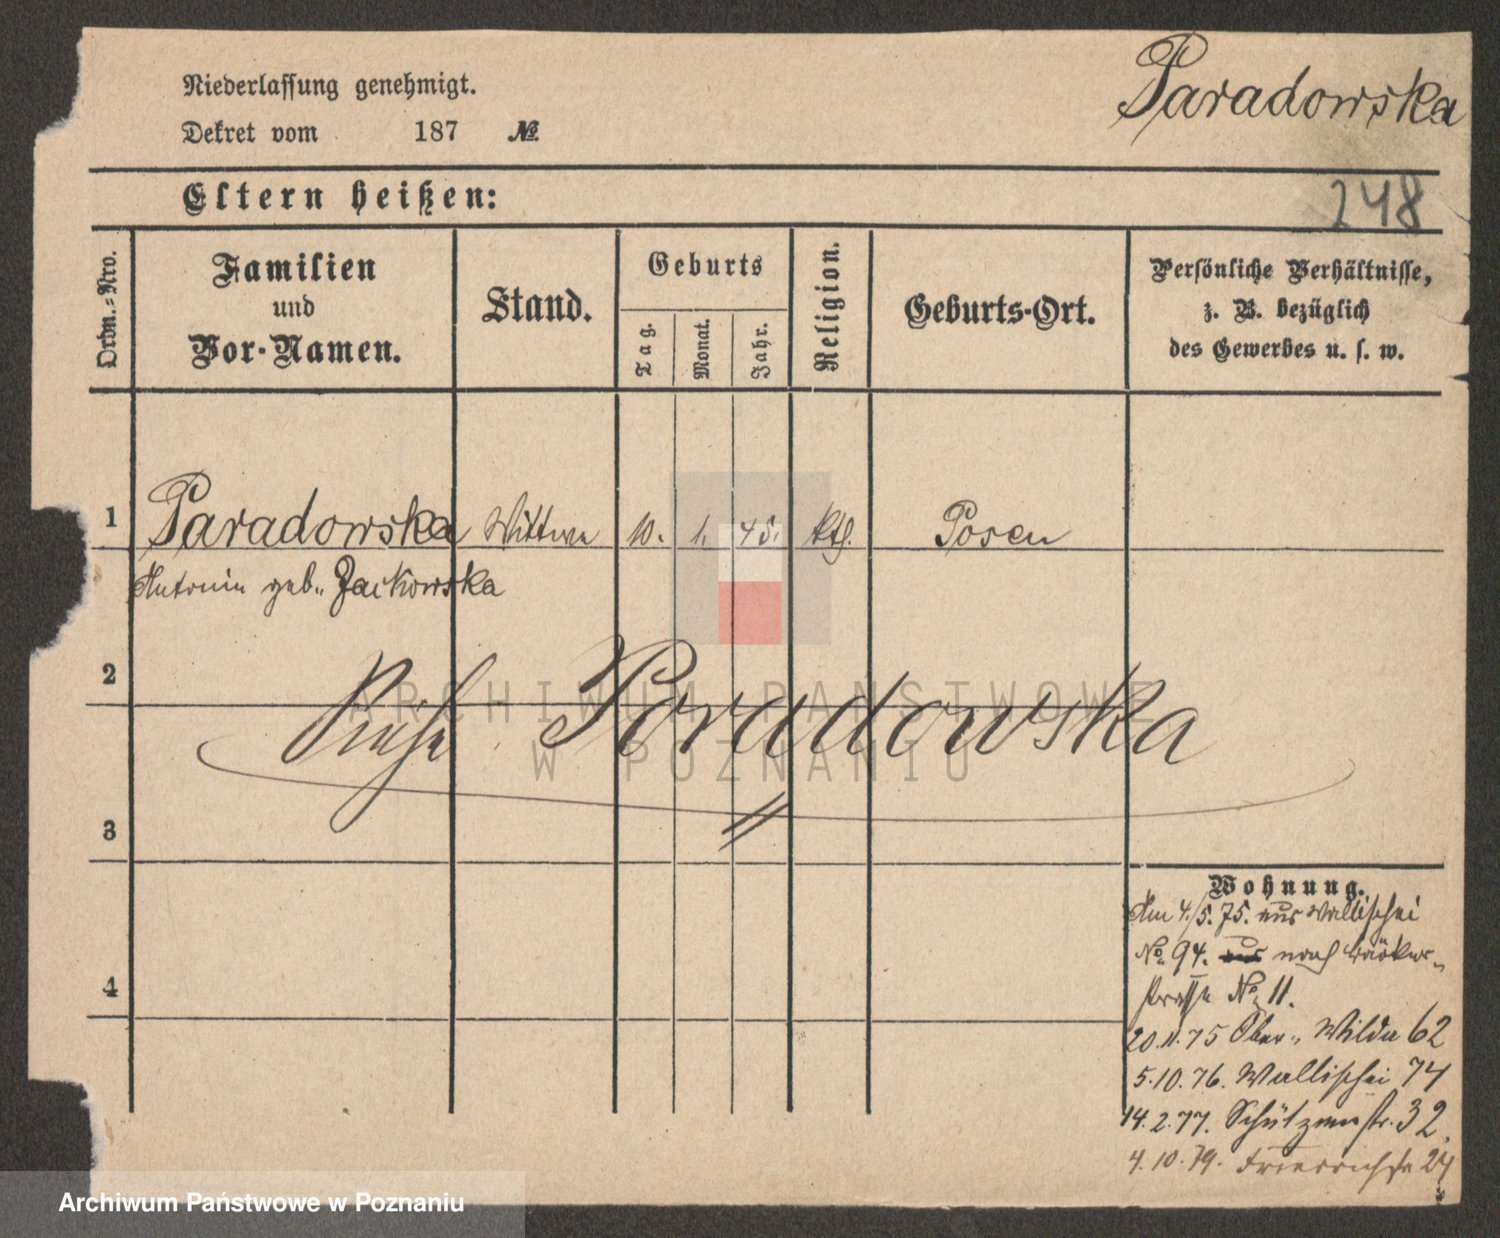 Paradowska
Niederlassung genehmigt.
Dekret vom 187 №
248
Eltern heißen:
Ordn.-Nro.
Familien
und
Vor-Namen.
Stand.
Geburts
Tag.
Monat.
Jahr.
Religion.
Geburts-Ort.
Persönliche Verhältnisse,
z. B. bezüglich
des Gewerbes u. s. w.
1 Paradowska Wittwe 10. 1. 45. kth. Posen
Antonie geb. Jackowska
2
Siehe Poradowska
3
4
Wohnung.
Am 4./5. 75. aus Wallischei
No. 94. aus nach Bäcker-
strasse No. 11.
20.11.75 Ober-Wilda 62
5.10.76. Wallischei 74
14.2.77. Schützenstr. 32.
4.10.79. Friedrichstr 24
ARCHIWUM PAŃSTWOWE
W POZNANIU
Archiwum Państwowe w Poznaniu